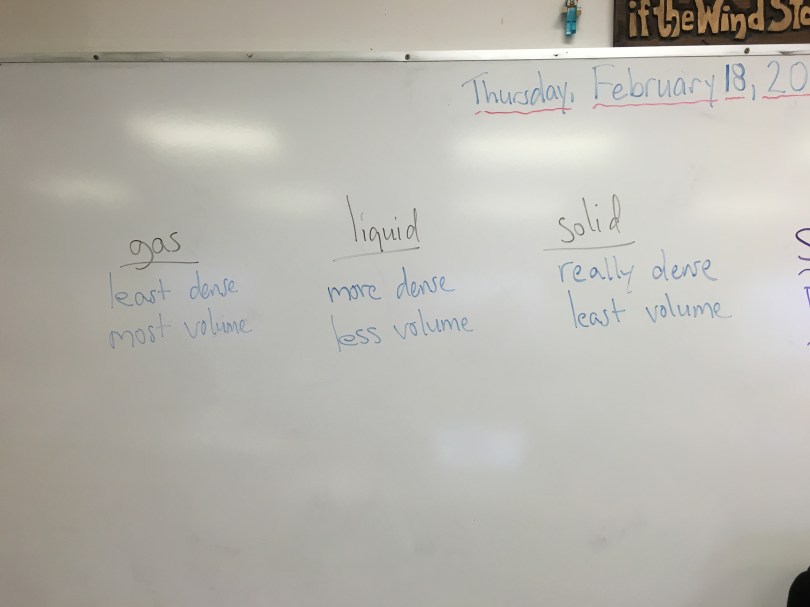 if the Wind
Thursday, February 18, 20
gas
least dense
most volume
liquid
more dense
less volume
solid
really dense
least volume